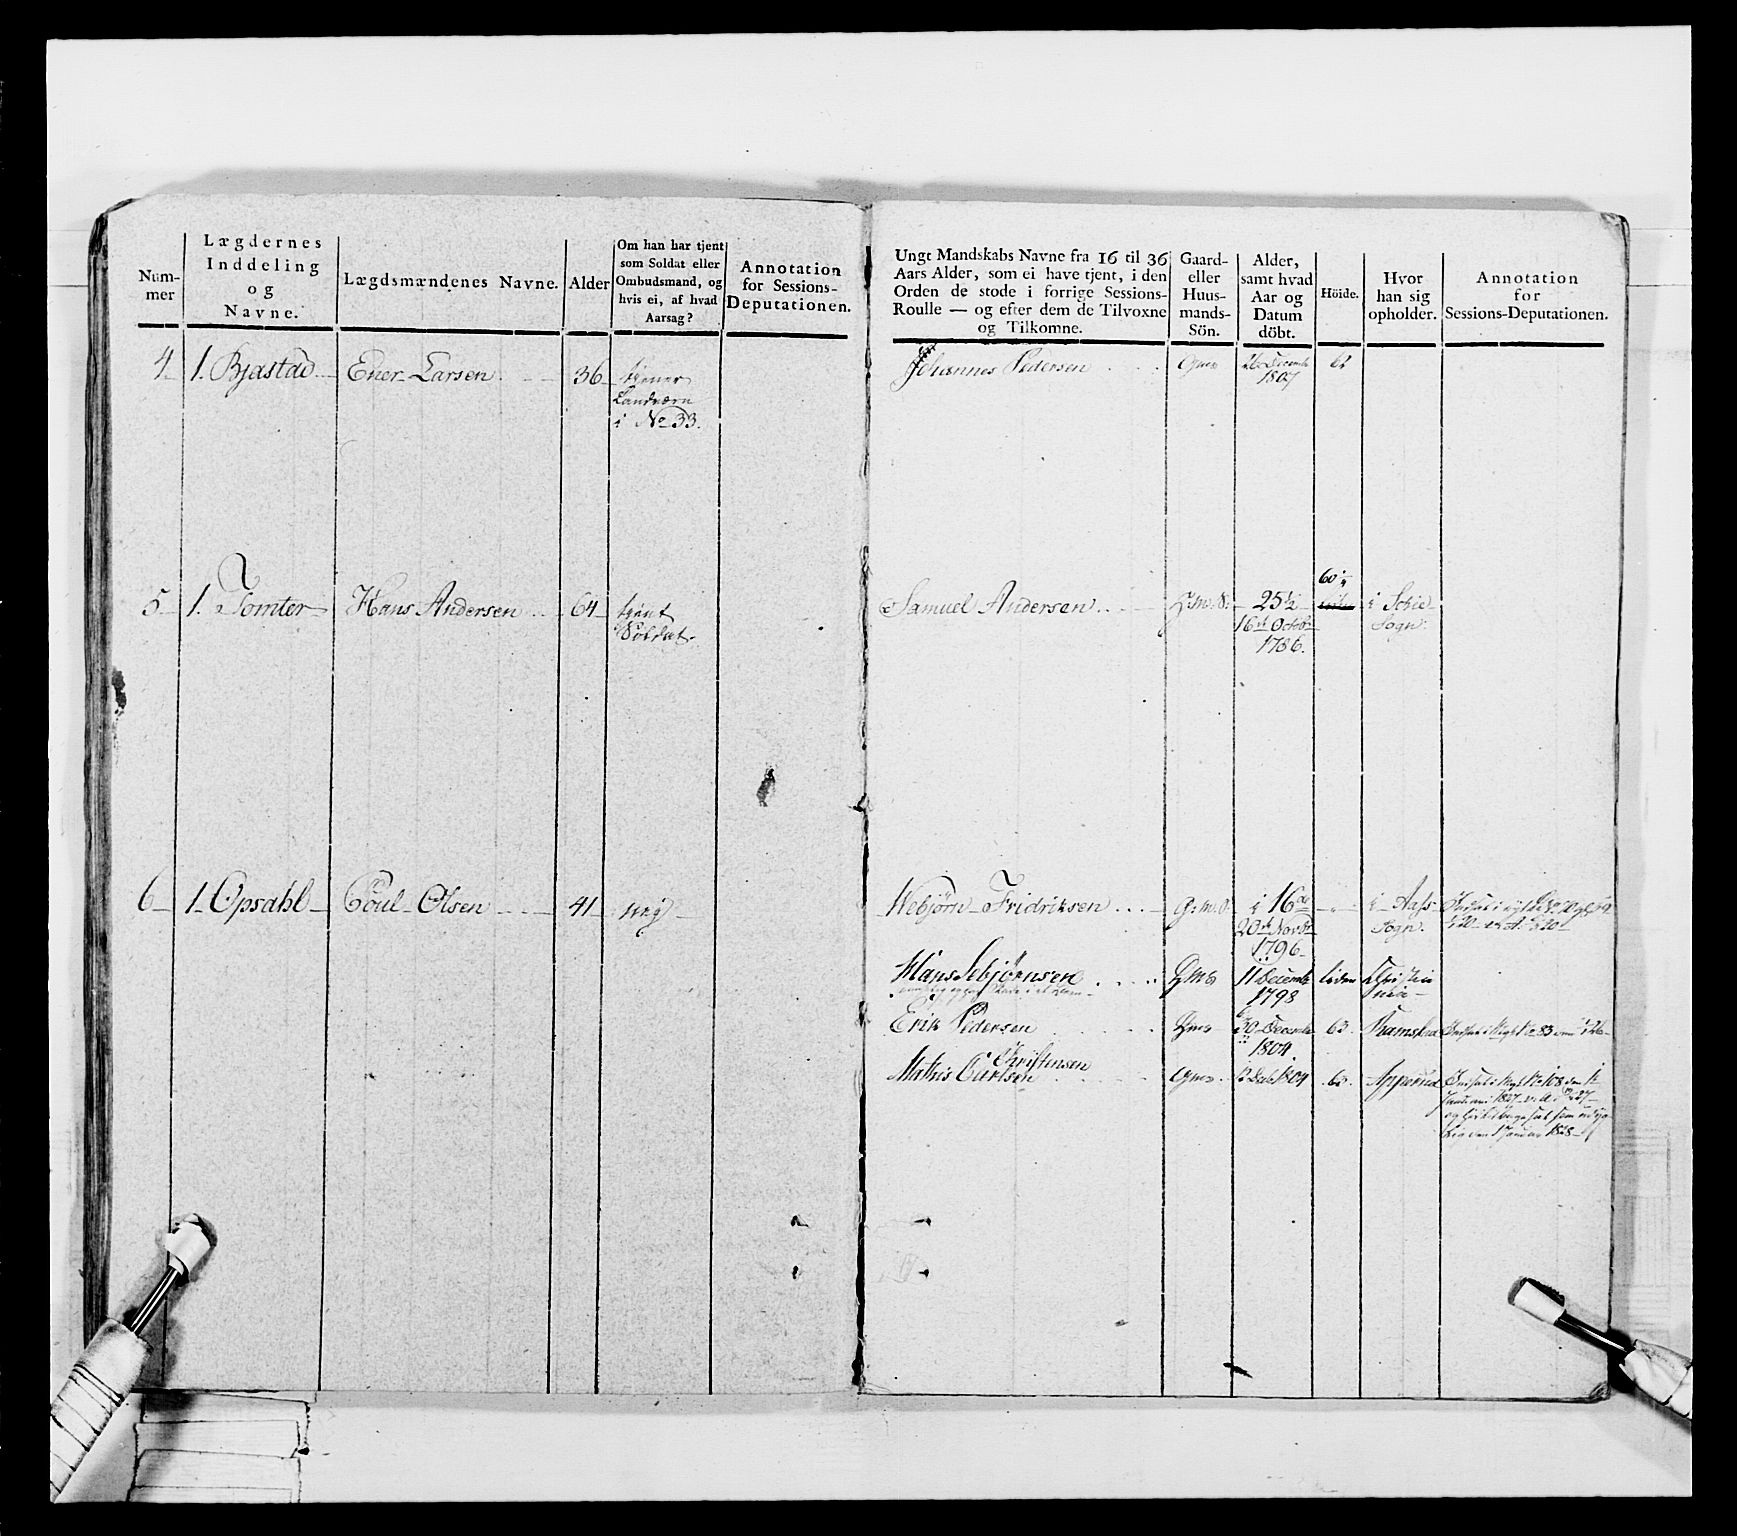 Num-
mer
Lægdernes
Inddeling
og
Navne.
Lægdsmændenes Navne.
Alder
Om han har tjent
som Soldat eller
Ombudsmand, og
hvis ei, af hvad
Aarsag?
Annotation
for Sessions-
Deputationen.
4
1. Bjæstad
Ener Larsen
36
tjener
Landværn
i No 33.
5
1. Tomter
Hans Andersen
64
tjent
Soldat
6
1 Opsahl
Poul Olsen
41
nej
Ungt Mandskabs Navne fra 16 til 36
Aars Alder, som ei have tjent, i den
Orden de stode i forrige Sessions-
Roulle — og efter dem de Tilvoxne
og Tilkomne.
Gaard-
eller
Huus-
mands-
Sön.
Alder,
samt hvad
Aar og
Datum
döbt.
Höide.
Hvor
han sig
opholder.
Annotation
for
Sessions-Deputationen.
Johannes Pedersen
Gmo
26 Decembr
1807
62
Samuel Andersen
H: m: S:
25½
16de Octobr
1786.
60¼
i Schie
Sogn.
Nebjörn Fridriksen
G: m: S:
i 16de
20de Novbr
1796
i Aass
Sogn.
Hans Sebjørnsen
11 Decembr
1798
liden
Christia
nia
Erik Pedersen
30 Decembr
1804
63
Ramstad
Mathis Carlsen
Christensen
Gmo
1804
62
Apperud
Januari 1827
Januar 1828